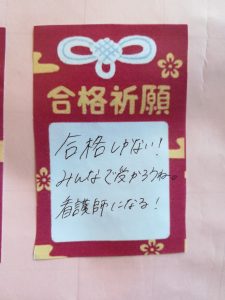 合格祈願
合格しかない!
みんなで受かろうね。
看護師になる!